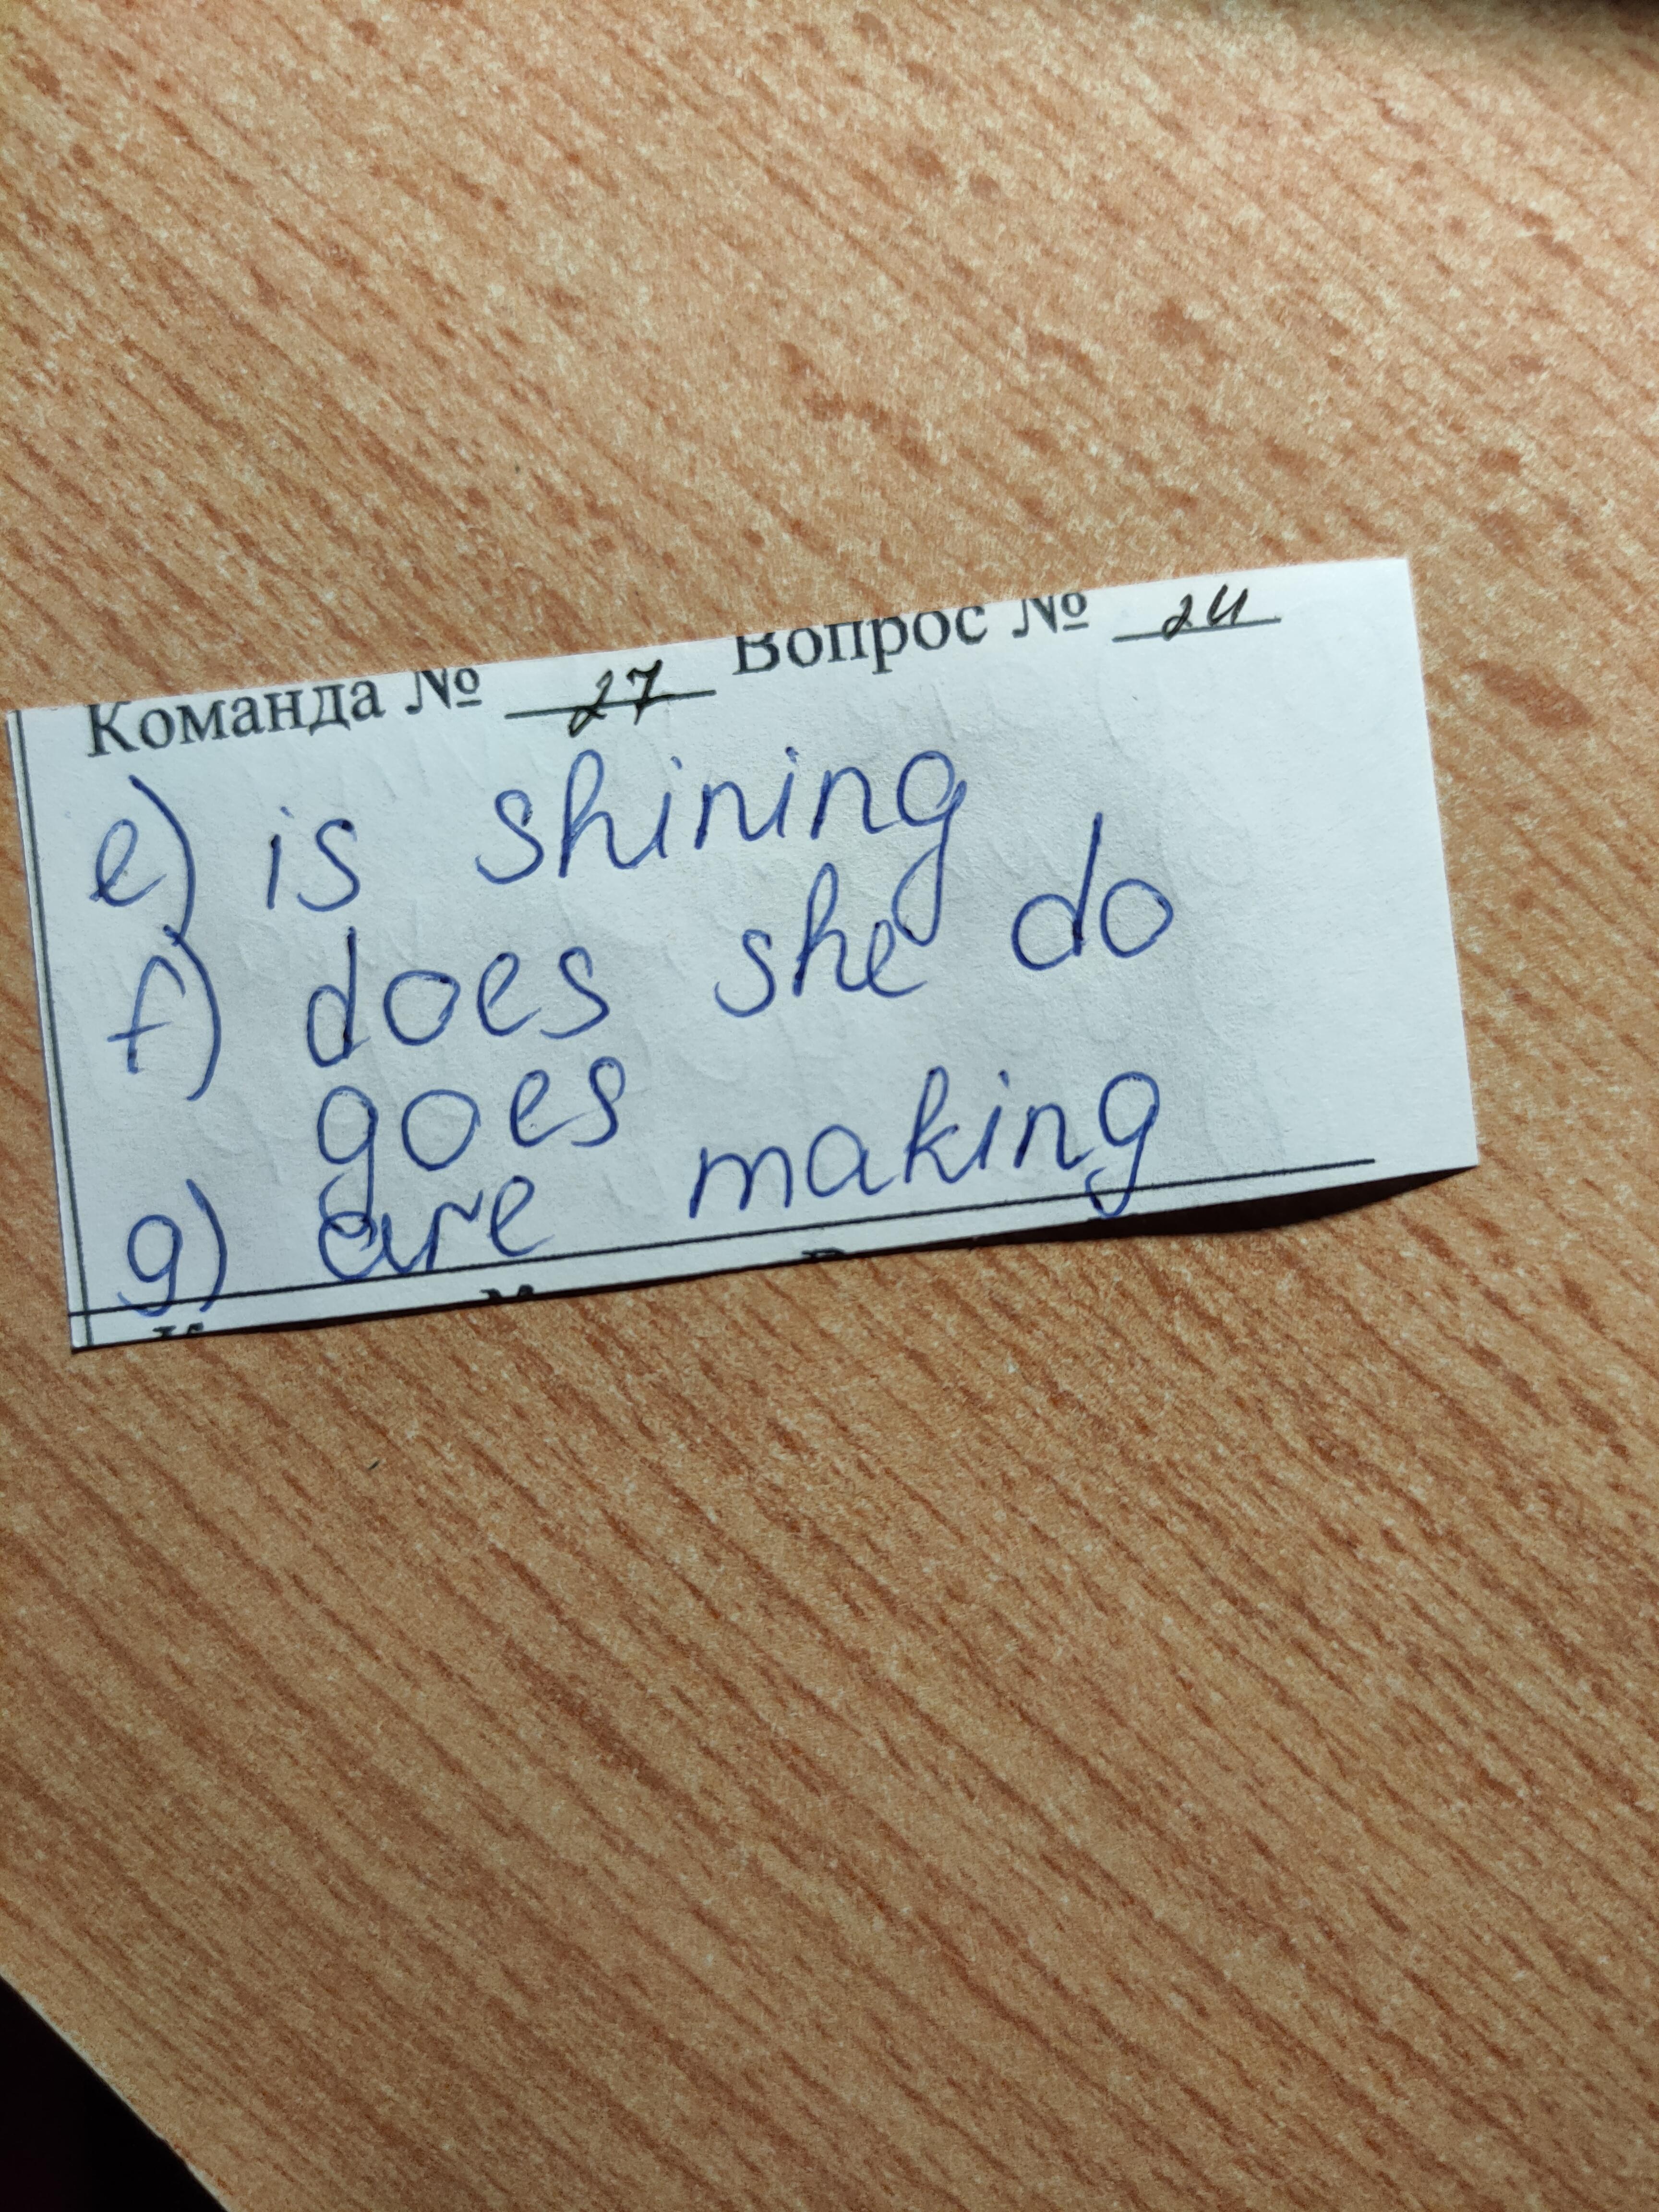 Команда № 27 Вопрос № 24
e) is shining
f) does she do
goes
g) are making